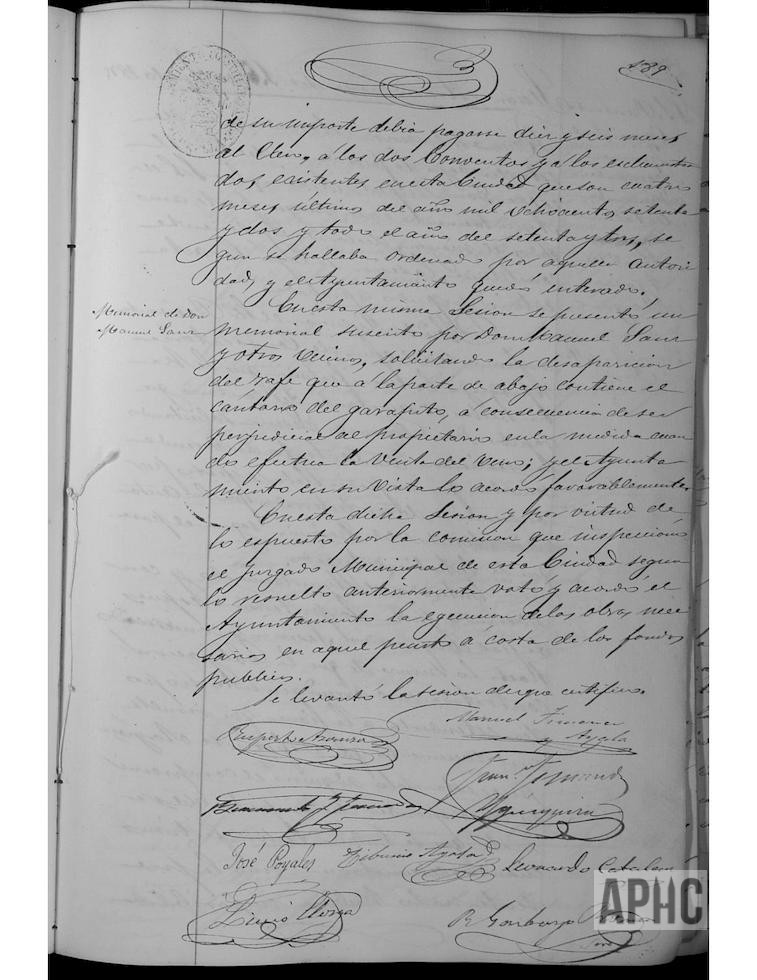 189
de su importe debia pagarse diez y seis meses
al Clero, a los dos Conventos y a los esclaustra
dos, existentes en esta Ciudad que son cuatro
meses ultimos del año mil ochocientos setenta
y dos y todo el año del setenta y tres, se
gun se hallaba ordenado por aquella autori
dad, y el Ayuntamiento quedó enterado.
Memorial de Don
Manuel Sanz
En esta misma Sesion se presentó un
memorial suscrito por Don Manuel Sanz
y otros vecinos, solicitando la desaparicion
del rafe que á la parte de abajo contiene el
cántaro del garapito, á consecuencia de ser
perjudicial al propietario en la medida cuan
do efectua la venta del vino; y el Ayunta
miento en su vista lo acordó favorablemente.
En esta dicha Sesion y por virtud de
lo espuesto por la comision que inspeccionó
el Juzgado Municipal de esta Ciudad segun
lo resuelto anteriormente votó y acordó el
Ayuntamiento la egecucion de las obras nece
sarias en aquel punto á costa de los fondos
publicos.
Se levantó la sesion de que certifico.
Manuel Jimenez
y Ayala
Ruperto
José Poyales Tiburcio Ayala Leonardo Catalan
APHC